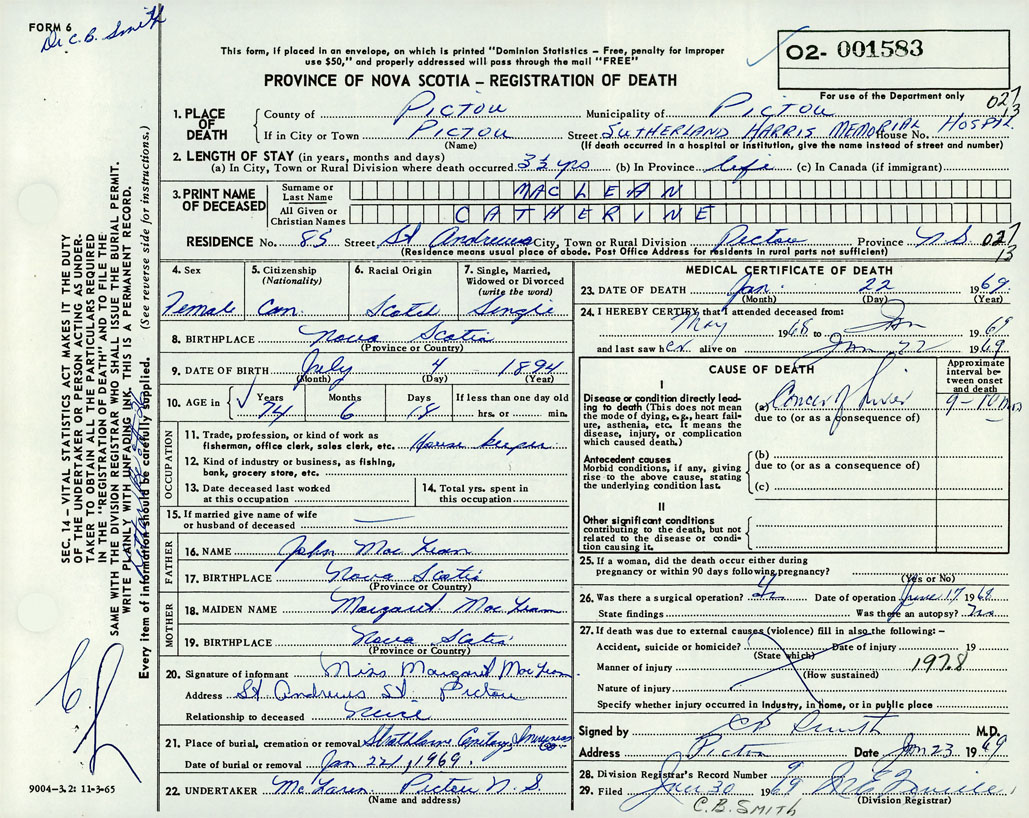 FORM 6
Dr. C.B. Smith
This form, if placed in an envelope, on which is printed "Dominion Statistics – Free, penalty for improper
use $50," and properly addressed will pass through the mail "FREE"
PROVINCE OF NOVA SCOTIA – REGISTRATION OF DEATH
02- 001583
For use of the Department only
027
13
1. PLACE OF DEATH
County of PICTOU Municipality of PICTOU
If in City or Town PICTOU Street SUTHERLAND HARRIS MEMORIAL HOSPTL House No.
(Name) (If death occurred in a hospital or institution, give the name instead of street and number)
2. LENGTH OF STAY (in years, months and days)
(a) In City, Town or Rural Division where death occurred 3½ yrs (b) In Province life (c) In Canada (if immigrant)
3. PRINT NAME OF DECEASED
Surname or Last Name MACLEAN
All Given or Christian Names CATHERINE
RESIDENCE No. 85 Street St Andrews City, Town or Rural Division Pictou Province N.S. 027
13
(Residence means usual place of abode. Post Office Address for residents in rural parts not sufficient)
4. Sex
Female
5. Citizenship
(Nationality)
Can.
6. Racial Origin
Scotch
7. Single, Married,
Widowed or Divorced
(write the word)
Single
8. BIRTHPLACE Nova Scotia
(Province or Country)
9. DATE OF BIRTH July 4 1894
(Month) (Day) (Year)
10. AGE in Years Months Days If less than one day old
74 6 18 hrs. or min.
OCCUPATION
11. Trade, profession, or kind of work as
fisherman, office clerk, sales clerk, etc. House keeper
12. Kind of industry or business, as fishing,
bank, grocery store, etc.
13. Date deceased last worked
at this occupation
14. Total yrs. spent in
this occupation
15. If married give name of wife
or husband of deceased —
FATHER
16. NAME John MacLean
17. BIRTHPLACE Nova Scotia
(Province or Country)
MOTHER
18. MAIDEN NAME Margaret MacLean
19. BIRTHPLACE Nova Scotia
(Province or Country)
20. Signature of informant Miss Margaret MacLean
Address St Andrews St. Pictou
Relationship to deceased Neice
21. Place of burial, cremation or removal Strathlorne Cemetary, Inverness Co
Date of burial or removal Jan 22, 1969.
22. UNDERTAKER McLaren Pictou N.S.
(Name and address)
MEDICAL CERTIFICATE OF DEATH
23. DATE OF DEATH Jan. 22 1969.
(Month) (Day) (Year)
24. I HEREBY CERTIFY that I attended deceased from:
May 1968 to Jan 1969
and last saw her alive on Jan 22 1969
CAUSE OF DEATH
Approximate
interval be-
tween onset
and death
I
Disease or condition directly lead-
ing to death (This does not mean
the mode of dying, e.g., heart failure,
asthenia, etc. It means the
disease, injury, or complication
which caused death.)
(a) Cancer of Liver 9-10 mos
due to (or as a consequence of)
Antecedent causes
Morbid conditions, if any, giving
rise to the above cause, stating
the underlying condition last.
(b)
due to (or as a consequence of)
(c)
II
Other significant conditions
contributing to the death, but not
related to the disease or condi-
tion causing it.
25. If a woman, did the death occur either during
pregnancy or within 90 days following pregnancy?
(Yes or No)
26. Was there a surgical operation? Yes Date of operation June 17 1968
State findings Was there an autopsy? No
27. If death was due to external causes (violence) fill in also the following: –
Accident, suicide or homicide? Date of injury 19
(State which)
Manner of injury 197.8
(How sustained)
Nature of injury
Specify whether injury occurred in Industry, in home, or in public place
Signed by C B Smith M.D.
Address Pictou Date Jan 23 1969
28. Division Registrar's Record Number 9
29. Filed Jan 30 1969
(Division Registrar)
C.B. SMITH
SEC. 14 – VITAL STATISTICS ACT MAKES IT THE DUTY
OF THE UNDERTAKER OR PERSON ACTING AS UNDER-
TAKER TO OBTAIN ALL THE PARTICULARS REQUIRED
IN THE "REGISTRATION OF DEATH" AND TO FILE THE
SAME WITH THE DIVISION REGISTRAR WHO SHALL ISSUE THE BURIAL PERMIT.
WRITE PLAINLY WITH UNFADING INK. THIS IS A PERMANENT RECORD.
Every item of information should be carefully supplied. (See reverse side for instructions.)
9004-3.2: 11-3-65